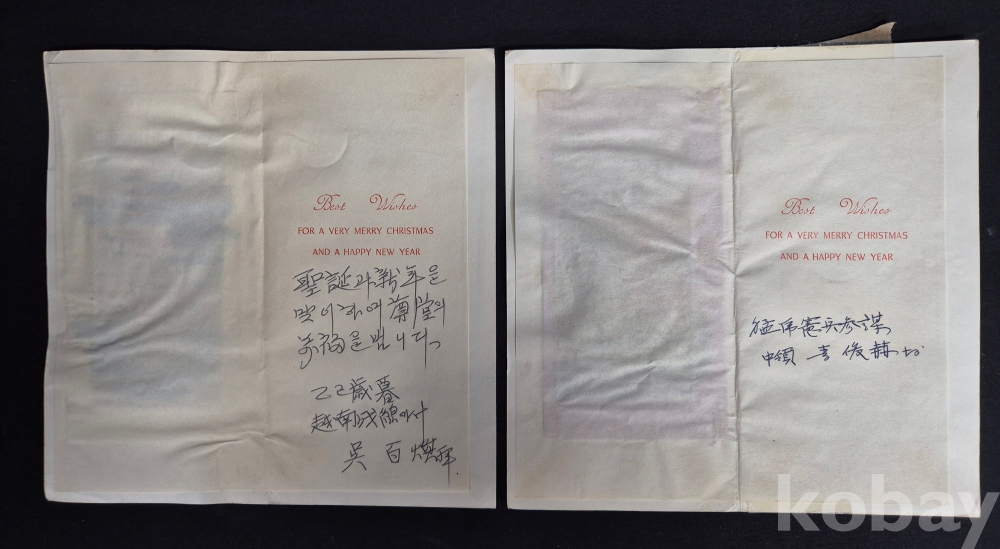 Best Wishes
FOR A VERY MERRY CHRISTMAS
AND A HAPPY NEW YEAR
聖誕과 新年을
맞이하여 尊堂의
萬福을 빕니다.
乙巳歲暮
越南戰線에서
吳百燦拜
Best Wishes
FOR A VERY MERRY CHRISTMAS
AND A HAPPY NEW YEAR
猛虎憲兵參謀
中領 李俊赫
kobay